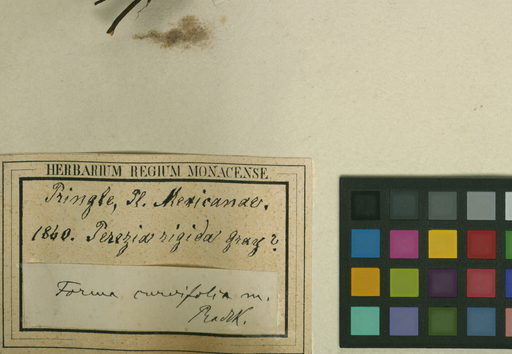 HERBARIUM REGIUM MONACENSE
Pringle, Pl. Mexicanae.
1860. Perezia rigida Gray?
Forma curvifolia m.